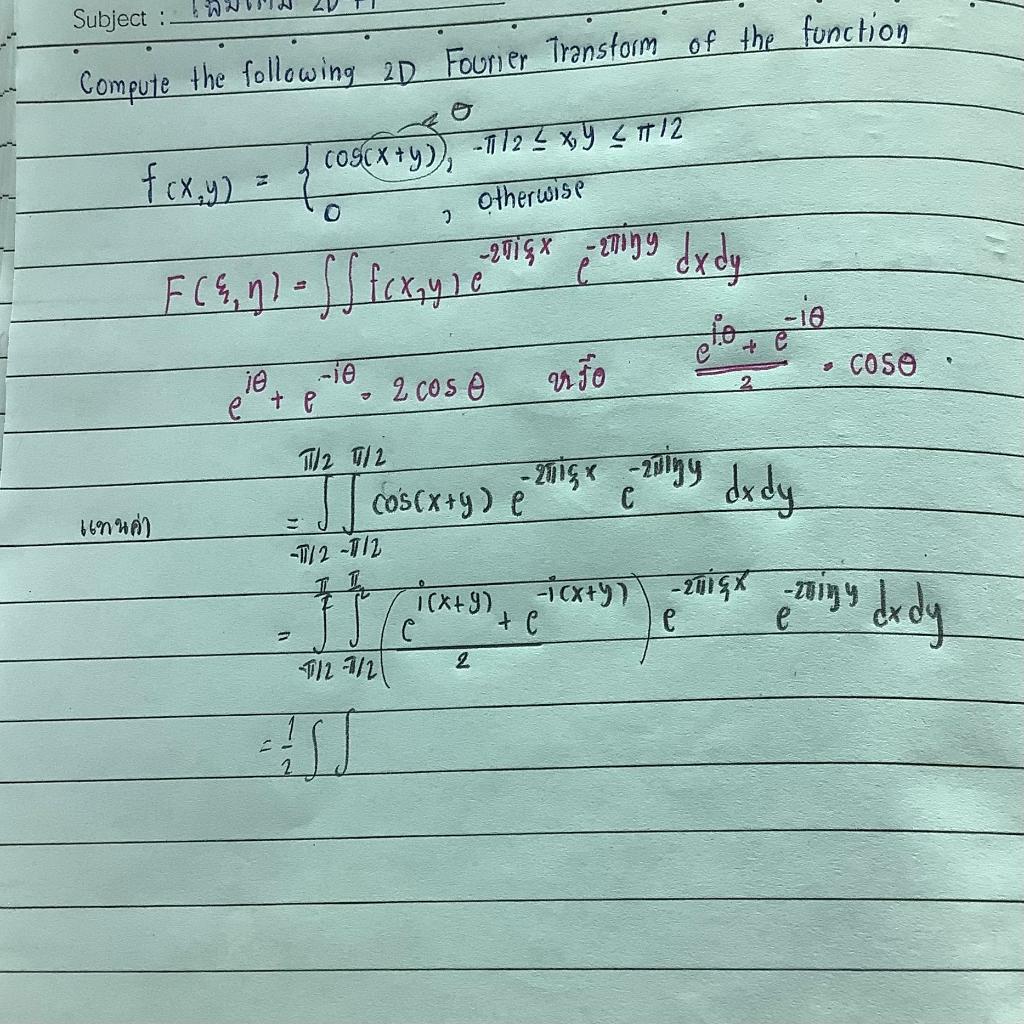 Subject : 2D FT
Compute the following 2D Fourier Transform of the function
θ
f(x,y) = { cos(x+y), -π/2 ≤ x,y ≤ π/2
0 , otherwise
F(ξ,η) = ∫∫ f(x,y) e^{-2πiξx} e^{-2πiηy} dxdy
e^{iθ} + e^{-iθ} = 2 cosθ หรือ \frac{e^{iθ} + e^{-iθ}}{2} = cosθ .
แทนค่า = ∫_{-π/2}^{π/2} ∫_{-π/2}^{π/2} cos(x+y) e^{-2πiξx} e^{-2πiηy} dxdy
= ∫_{-π/2}^{π/2} ∫_{-π/2}^{π/2} ( \frac{e^{i(x+y)} + e^{-i(x+y)}}{2} ) e^{-2πiξx} e^{-2πiηy} dxdy
= \frac{1}{2} ∫∫